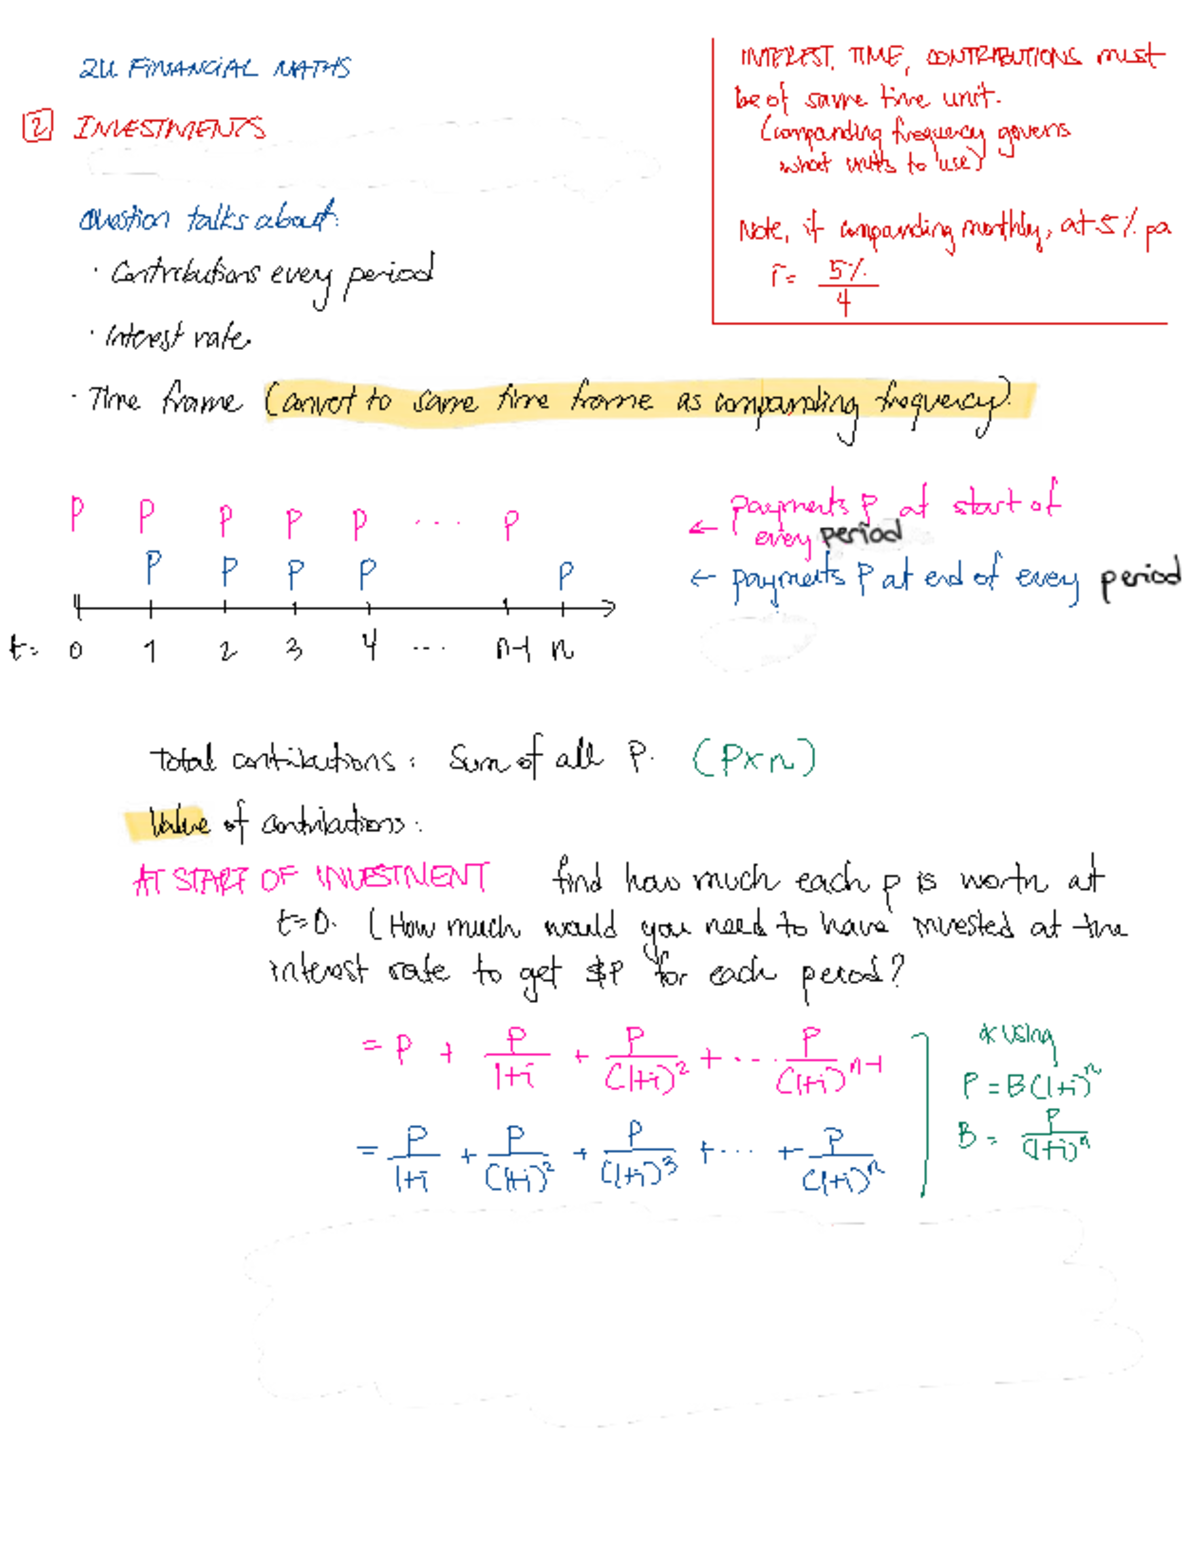 2U FINANCIAL MATHS
2 INVESTMENTS
INTEREST, TIME, CONTRIBUTIONS must
be of same time unit.
(compounding frequency governs
what units to use)
Note, if compounding monthly, at 5% pa
r = 5%/4
Question talks about:
· Contributions every period
· Interest rate
· Time frame (convert to same time frame as compounding frequency).
P P P P P ... P ← payments P at start of
every period
P P P P P ← payments P at end of every period
t= 0 1 2 3 4 ... n-1 n
Total contributions: Sum of all P. (P×n)
Value of contributions:
AT START OF INVESTMENT find how much each P is worth at
t=0. (How much would you need to have invested at the
interest rate to get $P for each period?
= P + P/(1+i) + P/(1+i)² + ... P/(1+i)^(n-1)
= P/(1+i) + P/(1+i)² + P/(1+i)³ + ... + P/(1+i)^n
* Using
P = B(1+i)^n
B = P/(1+i)^n